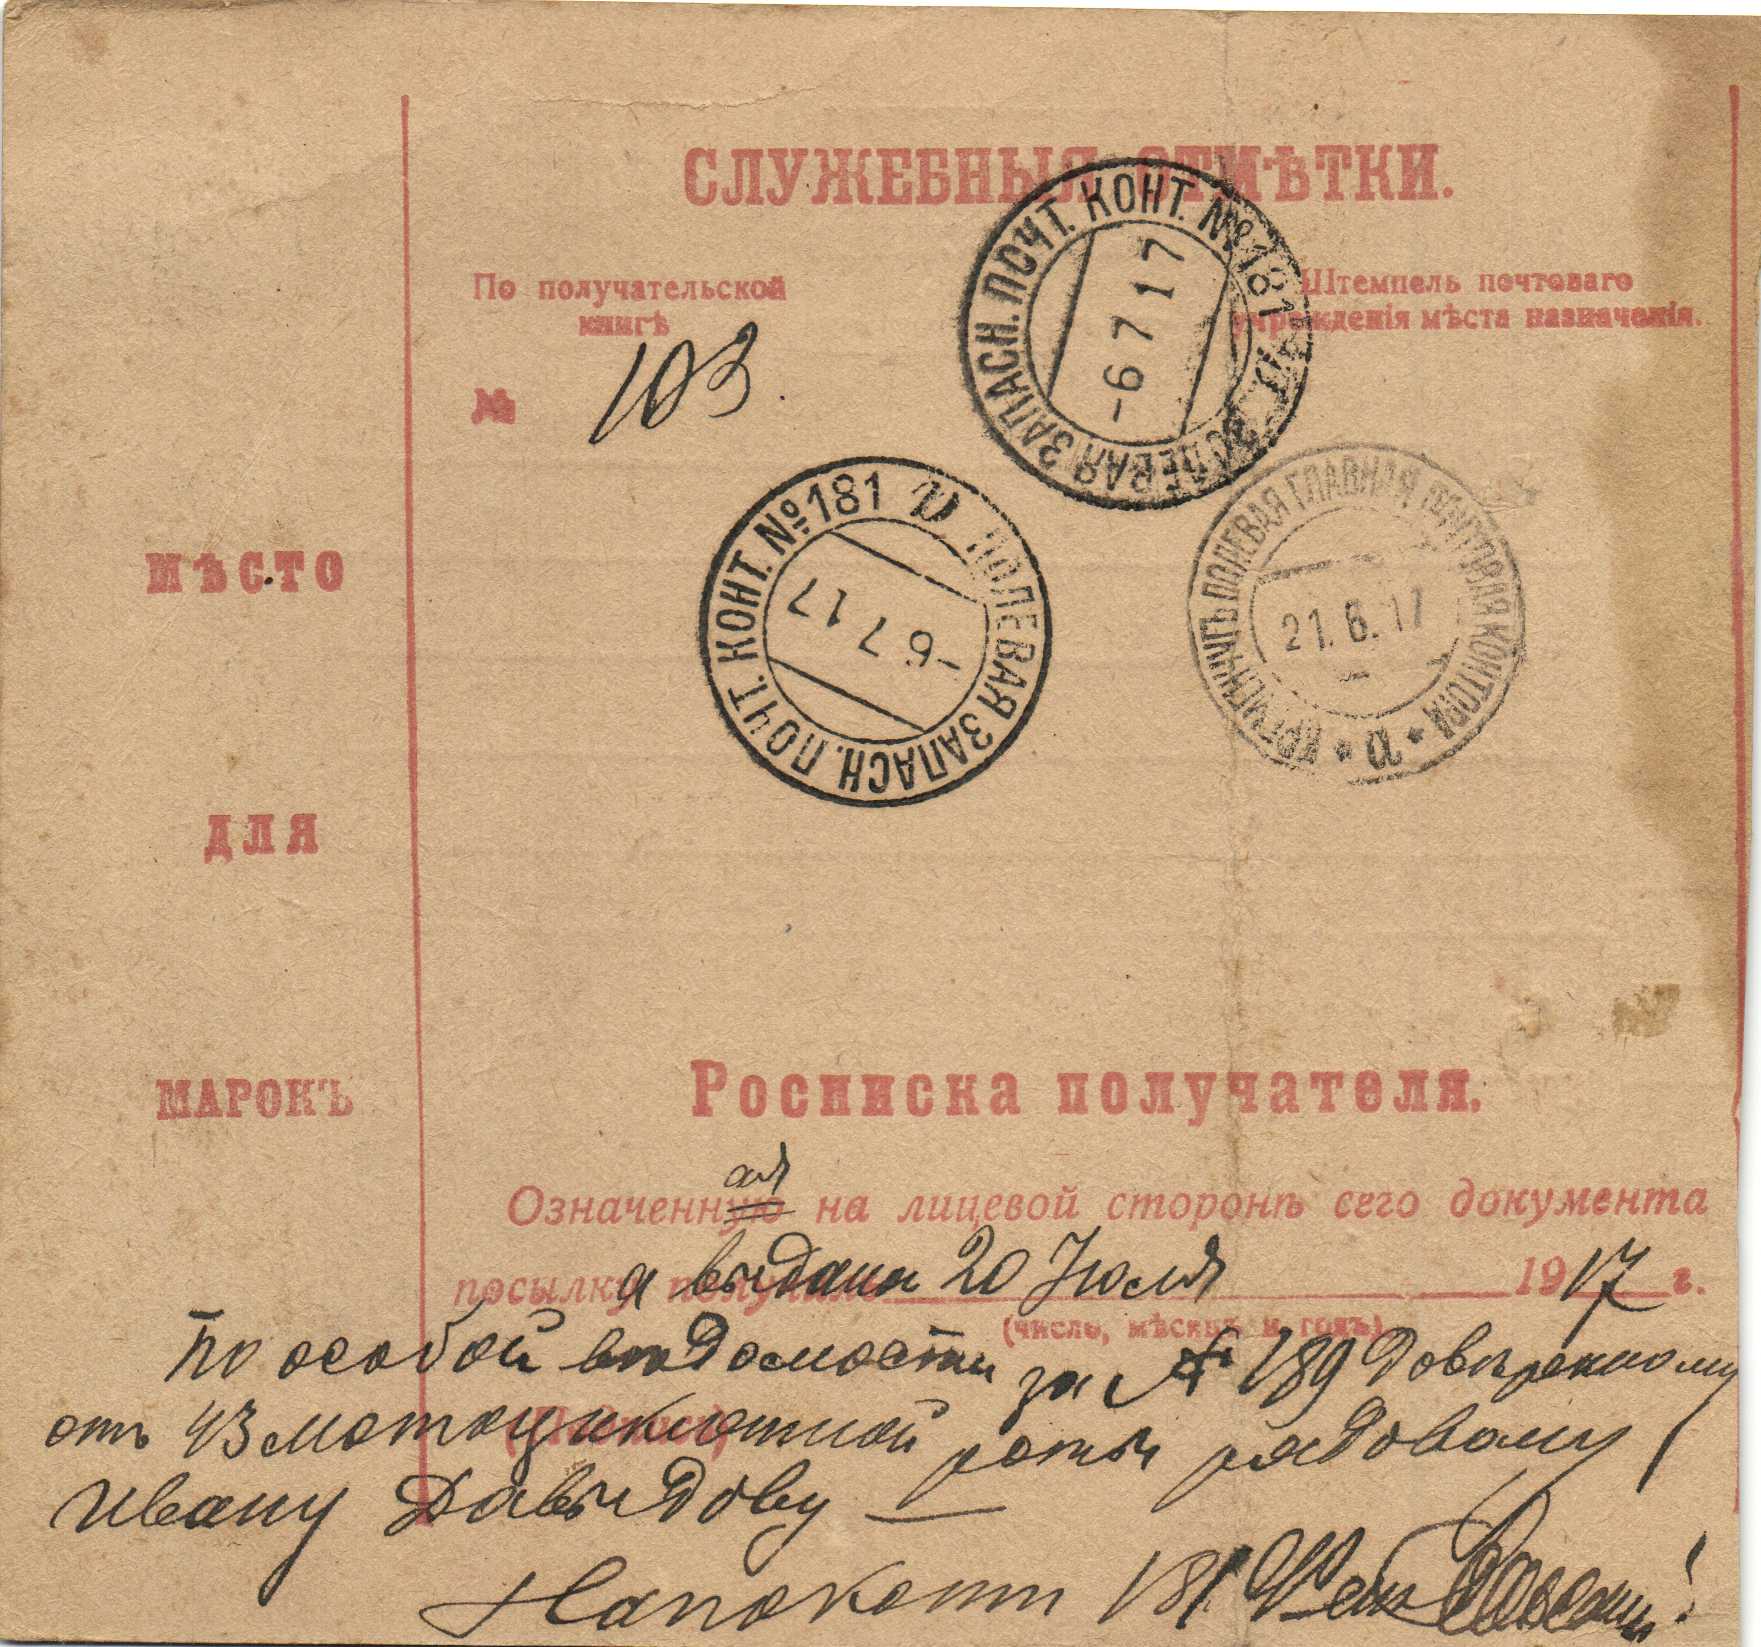 СЛУЖЕБНЫЯ ОТМѢТКИ.
По получательской
книгѣ
№ 103
Штемпель почтоваго
учрежденія мѣста назначенія.
ПОЛЕВАЯ ЗАПАСН. ПОЧТ. КОНТ. №181
-6 7 17
ПОЛЕВАЯ ЗАПАСН. ПОЧТ. КОНТ. №181 и
-6 7 17
КРЕМЕНЧУГЪ ПОЛЕВАЯ ГЛАВНАЯ ПОЧТОВАЯ КОНТОРА * и *
21.6.17
МѢСТО
ДЛЯ
МАРОКЪ
Росписка получателя.
ая
Означенную на лицевой сторонѣ сего документа
посылку получилъ а выдана 20 Июля 1917 г.
(число, мѣсяцъ и годъ)
По особой вѣдомости за № 189 Довѣренному
отъ 43 мотоциклетной роты рядовому
Ивану Давыдову —
181